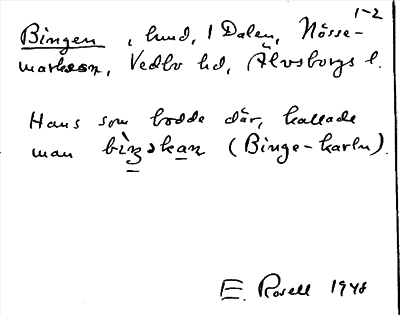 1-2
Bingen, lund, i Dalen, Nösse-
marken, Vedbo hd, Älvsborgs l.
Hans som bodde där, kallade
man (Binge-karln).
E. Rosell 1948